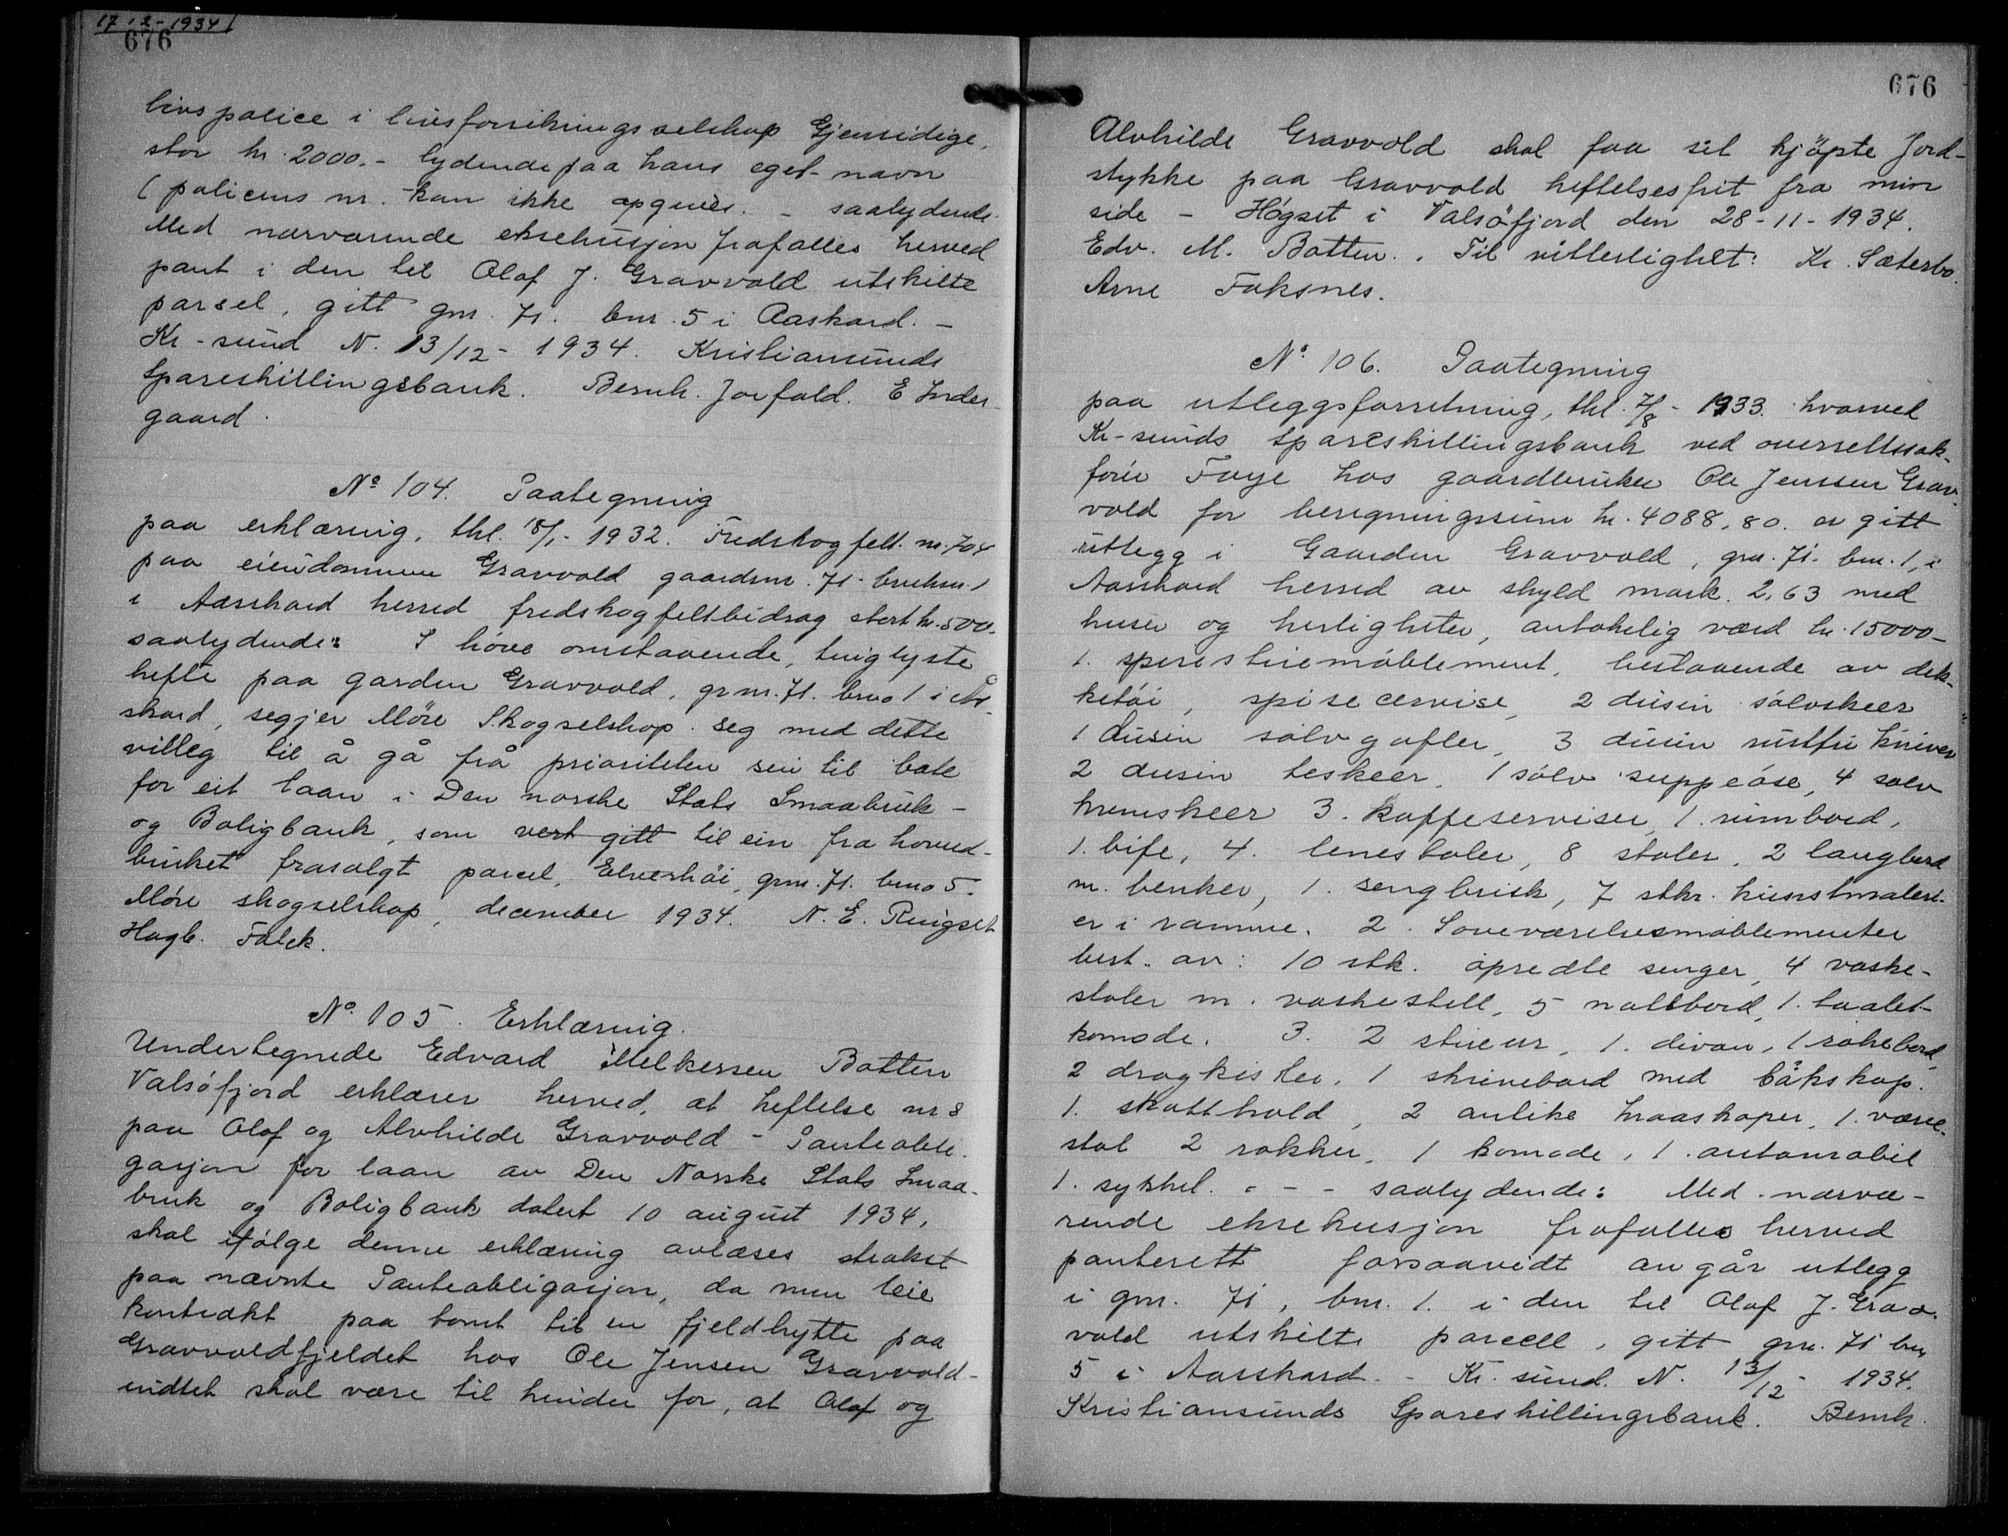 17.12-1934
676
livspolice i livsforsikringsselskap Gjensidige,
stor kr. 2000.- lydende paa hans eget navn
(policens nr. kan ikke opgives. - saalydende.
Med nærværende eksekusjon frafalles herved
pant i den til Olaf J. Gravvold utskilte
parsel, gitt gnr. 71. bnr. 5 i Aaskard. -
Kr-sund N. 13/12 - 1934. Kristiansunds
Spareskillingsbank. Bernh. Jorfald. E Inder-
gaard.
No 104. Paategning
paa erklæring, thl. 18/1- 1932. Fredskogfelt nr. 704
paa eiendommen Gravvold gaardsnr. 71- bruksnr. 1
i Aasskard herred fredskogfeltbidrag stort kr. 500.-
saalydende: I høve omstaaende, tinglyste
hefte paa garden Gravvold, grnr. 71. brno 1 i Ås-
skard, segjer Møre Skogselskap seg med dette
villeg til å gå frå prioriteten sin til bate
for eit laan i Den norske Stats Smaabruk-
og Boligbank, som vert gitt til ein fra hoved-
bruket frasolgt parsel, Elverhöi, grnr. 71. brno 5.
Møre skogselskap, december 1934. N. E. Ringset
Hagb. Falck.
No. 105. Erklæring.
Undertegnede Edvard Melkersen Botten
Valsöfjord erklærer herved, at heftelse nr 8
paa Olaf og Alvhilde Gravvold - Panteobli-
gasjon for laan av Den Norske Stats Smaa-
bruk og Boligbank datert 10 august 1934,
skal ifølge denne erklæring avlæses strakst
paa nævnte Panteobligasjon, da min leie
kontrakt paa tomt til en fjeldhytte paa
Gravvoldfjeldet hos Ole Jensen Gravvold-
indtet skal være til hinder for, at Olaf og
676
Alvhilde Gravvold skal faa sit kjöpte Jord-
stykke paa Gravvold heftelsesfrit fra min
side - Høgset i Valsöfjord den 28-11-1934.
Edv. M. Botten. Til vitterlighet: Kr. Sæterbø
Arne Foksnes.
No. 106. Paategning
paa utleggsforretning, thl. 7/8 - 1933. hvorved
Kr-sunds Spareskillingsbank ved overrettssak-
förer Faye hos gaardbruker Ole Jenssen Grav-
vold for beregningssum kr. 4088,80. er gitt
utlegg i Gaarden Gravvold, gnr. 71. bnr. 1, i
Aasskard herred av skyld mark. 2,63 med
huser og herligheter, antakelig værd kr. 15000-
1. spisestuemöblement, bestaaende av dek-
ketöi, spisecervise, 2 dusin sölvskeer
1 dusin sölvgafler, 3 dusin rustfri kniver
2 dusin teskeer, 1 sölv suppeöse, 4 sölv
kremskeer 3. kaffeserviser, 1. rundbord,
1. bife, 4. lenestoler, 8 stoler, 2 langbord
m. benker, 1. sengbrisk, 7 stkr. kunstmaleri-
er i ramme. 2. Soveværelsesmöblementer
best. av: 10 stk. opredte senger, 4 vaske-
stoler m. vaskestell, 5 nattbord, 1. toalet-
komode. 3. 2 stueur, 1. divan, 1 rökebord,
2 dragkister, 1 skrivebord med båkskap.
1. skatthold, 2 antike hraaskaper, 1. væve-
stol 2 rokker, 1 komode, 1. automobil
1. sykkel. - - - saalydende: Med nærvæ-
rende eksekusjon frafalles herved
panterett forsaavidt angår utlegg
i gnr. 71, bnr. 1. i den til Olaf J. Grav-
vold utskilte parcell, gitt gnr. 71 bnr
5 i Aarskard. - Kr. sund. N. 13/12 - 1934.
Kristiansunds Spareskillingsbank. Bernh.